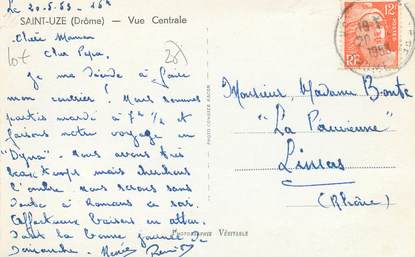 Le 20-5-53 - 16h
SAINT-UZE (Drôme) — Vue Centrale
Chère Maman
Cher Papa.
Je me décide à faire
mon courrier! Nous sommes
partis mardi à 7h ½ et
faisons notre voyage en
"Dyna". Nous avons très
beau temps mais cherchons
l'ombre. Nous serons sans
doute à Romans ce soir.
Affectueux baisers en atten-
dant la bonne journée de
Dimanche. Renée
Monsieur, Madame
"La
Limas
(Rhône)
PHOTOGRAPHIE VÉRITABLE
12F
RF